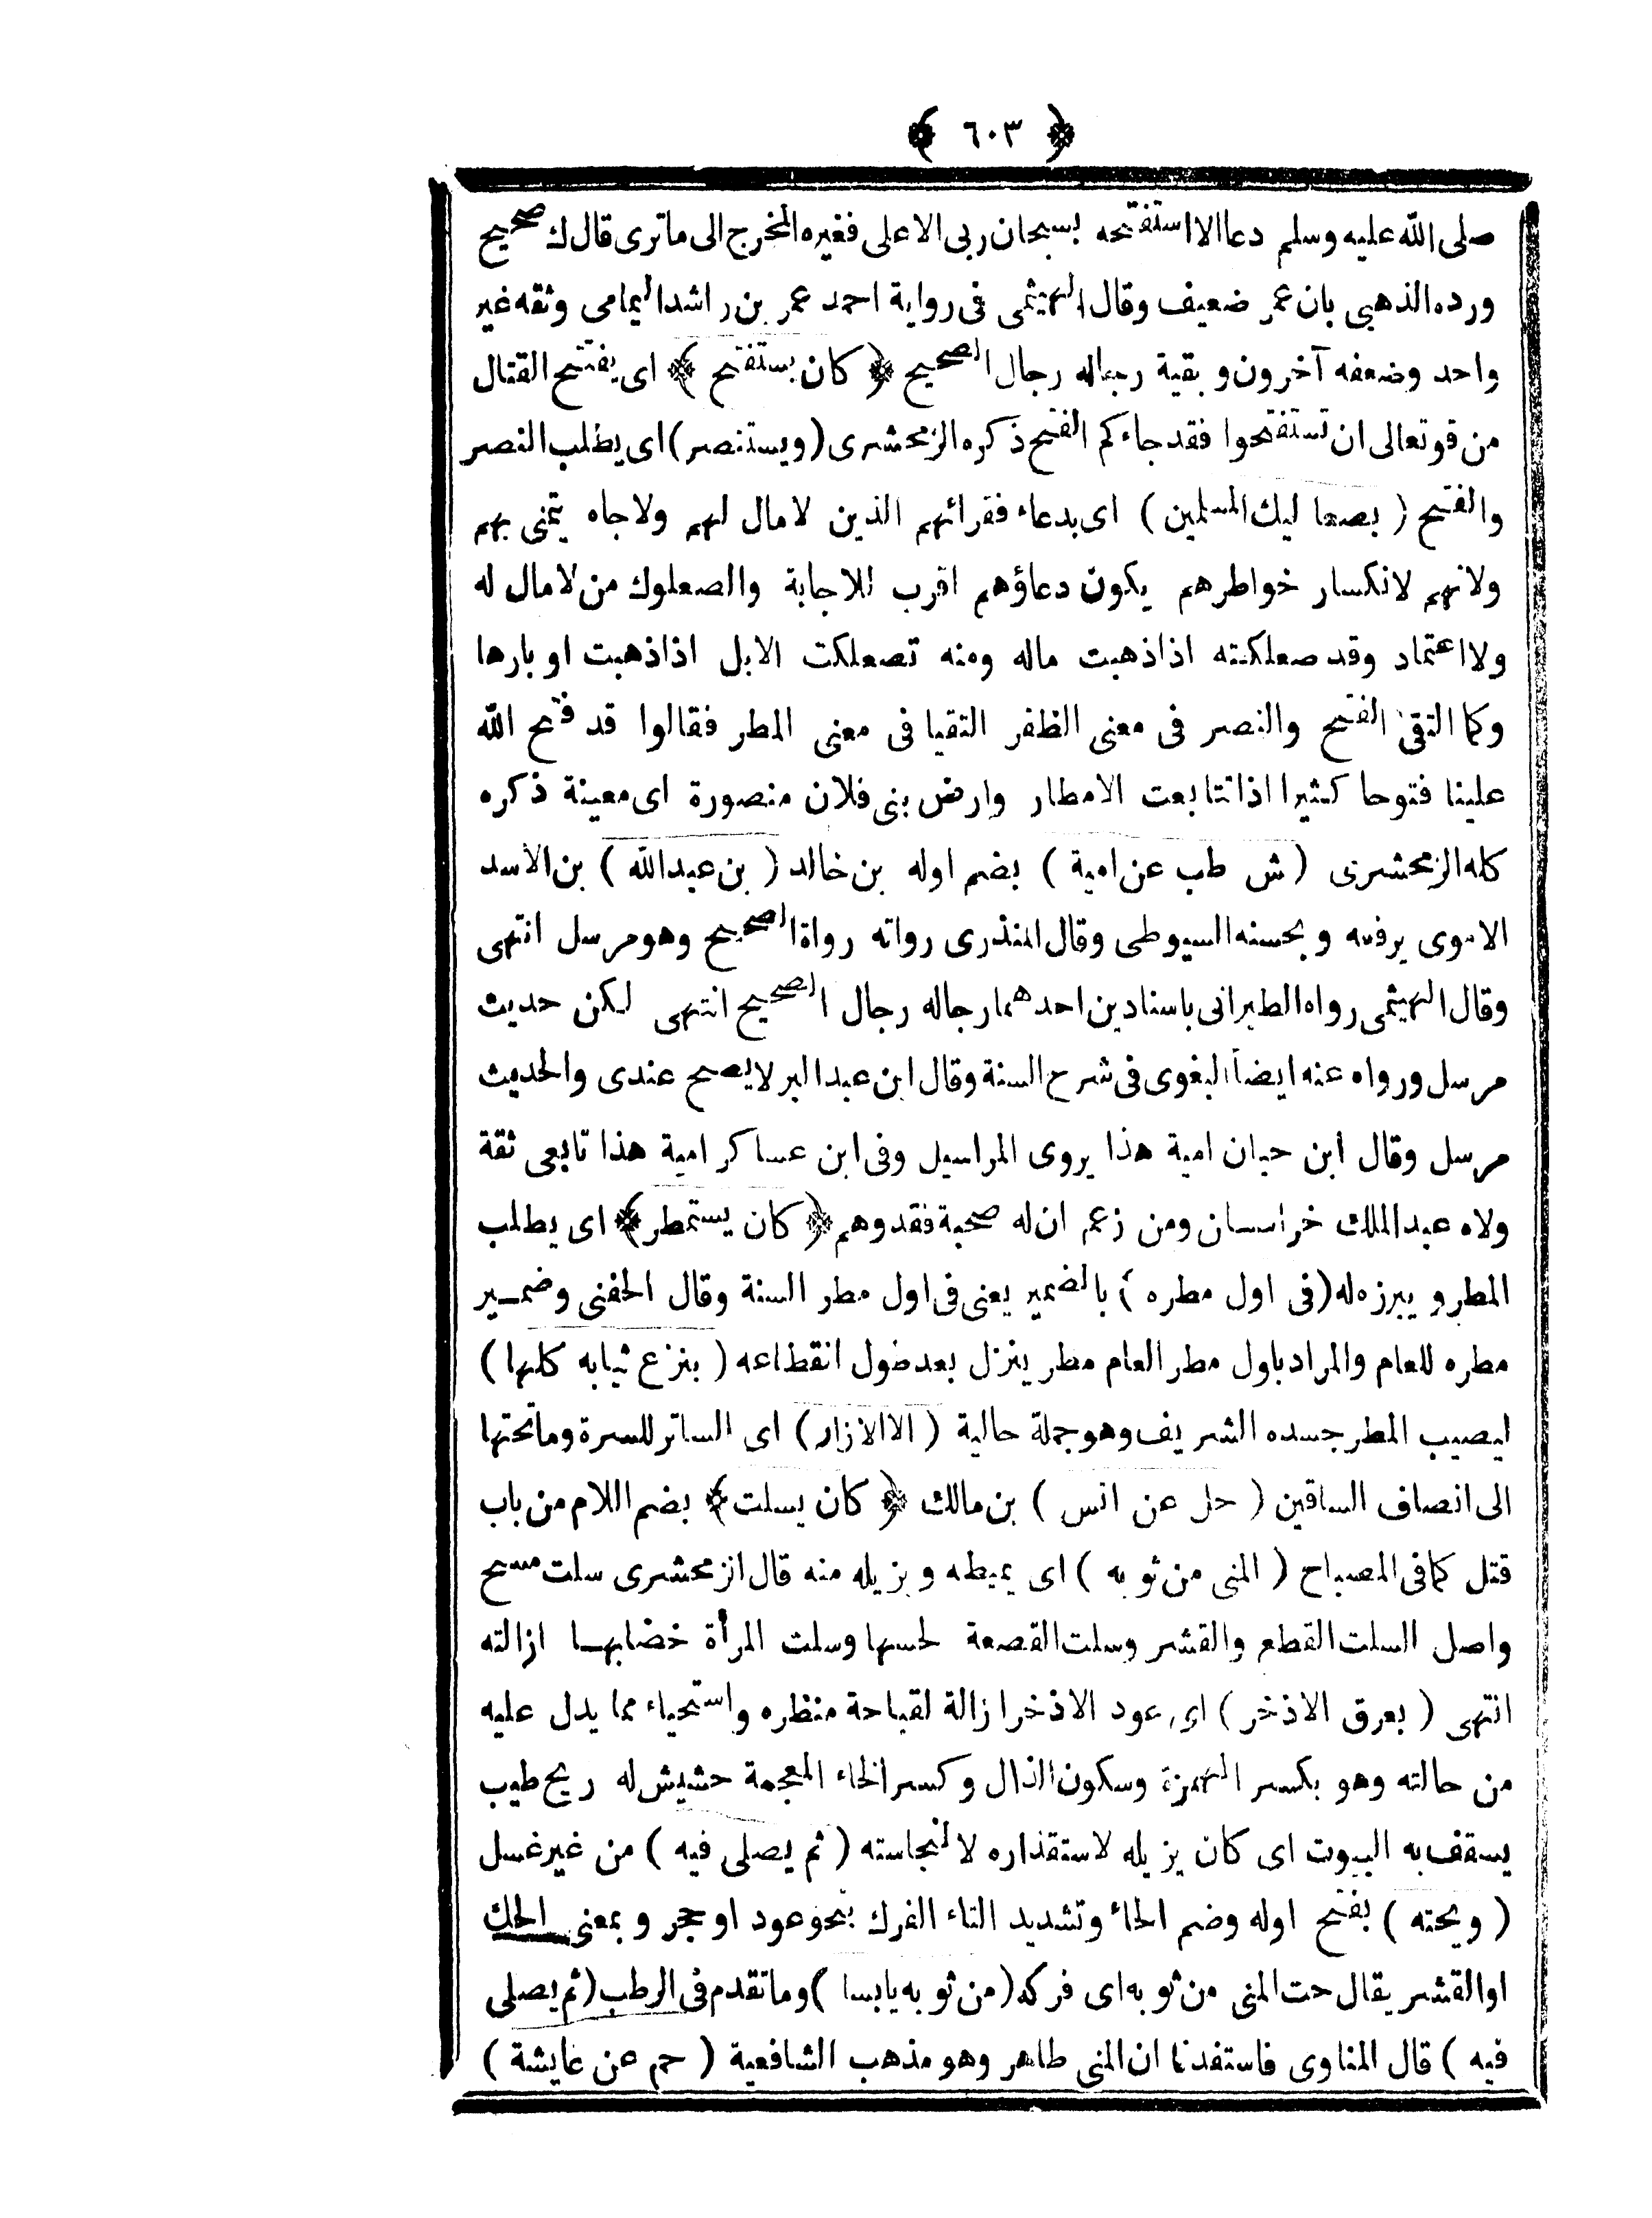 ﴿ ٦٠٣ ﴾
صلى الله عليه وسلم دعا الا استفتحه بسبحان ربى الاعلى فغيره المخرج الى ما ترى قال ك صحيح
ورده الذهبى بان عمر ضعيف وقال الهيثمى فى رواية احمد عمر بن راشد اليمامى وثقه غير
واحد وضعفه آخرون و بقية رجاله رجال الصحيح ﴿ كان يستفتح ﴾ اى يفتتح القتال
من قو تعالى ان تستفتحوا فقد جاءكم الفتح ذكره الزمخشرى (ويستنصر) اى يطلب النصر
والفتح ( بصعا ليك المسلمين ) اى بدعاء فقرائهم الذين لا مال لهم ولا جاه يتمنى بهم
ولانهم لانكسار خواطرهم يكون دعاؤهم اقرب للاجابة والصعلوك من لا مال له
ولا اعتماد وقد صعلكته اذا ذهبت ماله ومنه تصعلكت الابل اذا ذهبت او بارها
وكما التقى الفتح والنصر فى معنى الظفر التقيا فى معنى المطر فقالوا قد فتح الله
علينا فتوحا كثيرا اذا تتابعت الامطار وارض بنى فلان منصورة اى معينة ذكره
كله الزمخشرى ( ش طب عن امية ) بضم اوله بن خالد ( بن عبدالله ) بن الاسد
الاموى يرفعه و بحسنه السيوطى وقال المنذرى رواته رواة الصحيح وهو مرسل انتهى
وقال الهيثمى رواه الطبرانى باسنادين احدهما رجاله رجال الصحيح انتهى لكن حديث
مرسل ورواه عنه ايضا البغوى فى شرح السنة وقال ابن عبدالبر لا يصح عندى والحديث
مرسل وقال ابن حبان امية هذا يروى المراسيل وفى ابن عساكر امية هذا تابعى ثقة
ولاه عبدالملك خراسان ومن زعم ان له صحبة فقد وهم ﴿ كان يستمطر ﴾ اى يطلب
المطر و يبرزه له (فى اول مطره ) بالضمير يعنى فى اول مطر السنة وقال الحفنى وضمير
مطره للعام والمراد باول مطر العام مطر ينزل بعد طول انقطاعه ( ينزع ثيابه كلها )
ليصيب المطر جسده الشريف وهو جملة حالية ( الا الازار ) اى الساتر للسرة وما تحتها
الى انصاف الساقين ( حل عن انس ) بن مالك ﴿ كان يسلت ﴾ بضم اللام من باب
قتل كما فى المصباح ( المنى من ثوبه ) اى يميطه و يزيله منه قال الزمخشرى سلت مسح
واصل السلت القطع والقشر وسلت القصعة لحسها وسلت المرأة خضابها ازالته
انتهى ( بعرق الاذخر ) اى عود الاذخر ازالة لقباحة منظره واستحياء مما يدل عليه
من حالته وهو بكسر الهمزة وسكون الذال وكسر الخاء المعجمة حشيش له ريح طيب
يسقف به البيوت اى كان يزيله لاستقذاره لا لنجاسته ( ثم يصلى فيه ) من غير غسل
( ويحته ) بفتح اوله وضم الحاء وتشديد التاء الفرك بنحو عود او حجر و بمعنى الحك
او القشر يقال حت المنى من ثوبه اى فركه ( من ثوبه يابسا ) وما تقدم فى الرطب (ثم يصلى
فيه ) قال المناوى فاستفدنا ان المنى طاهر وهو مذهب الشافعية ( حم عن عايشة )